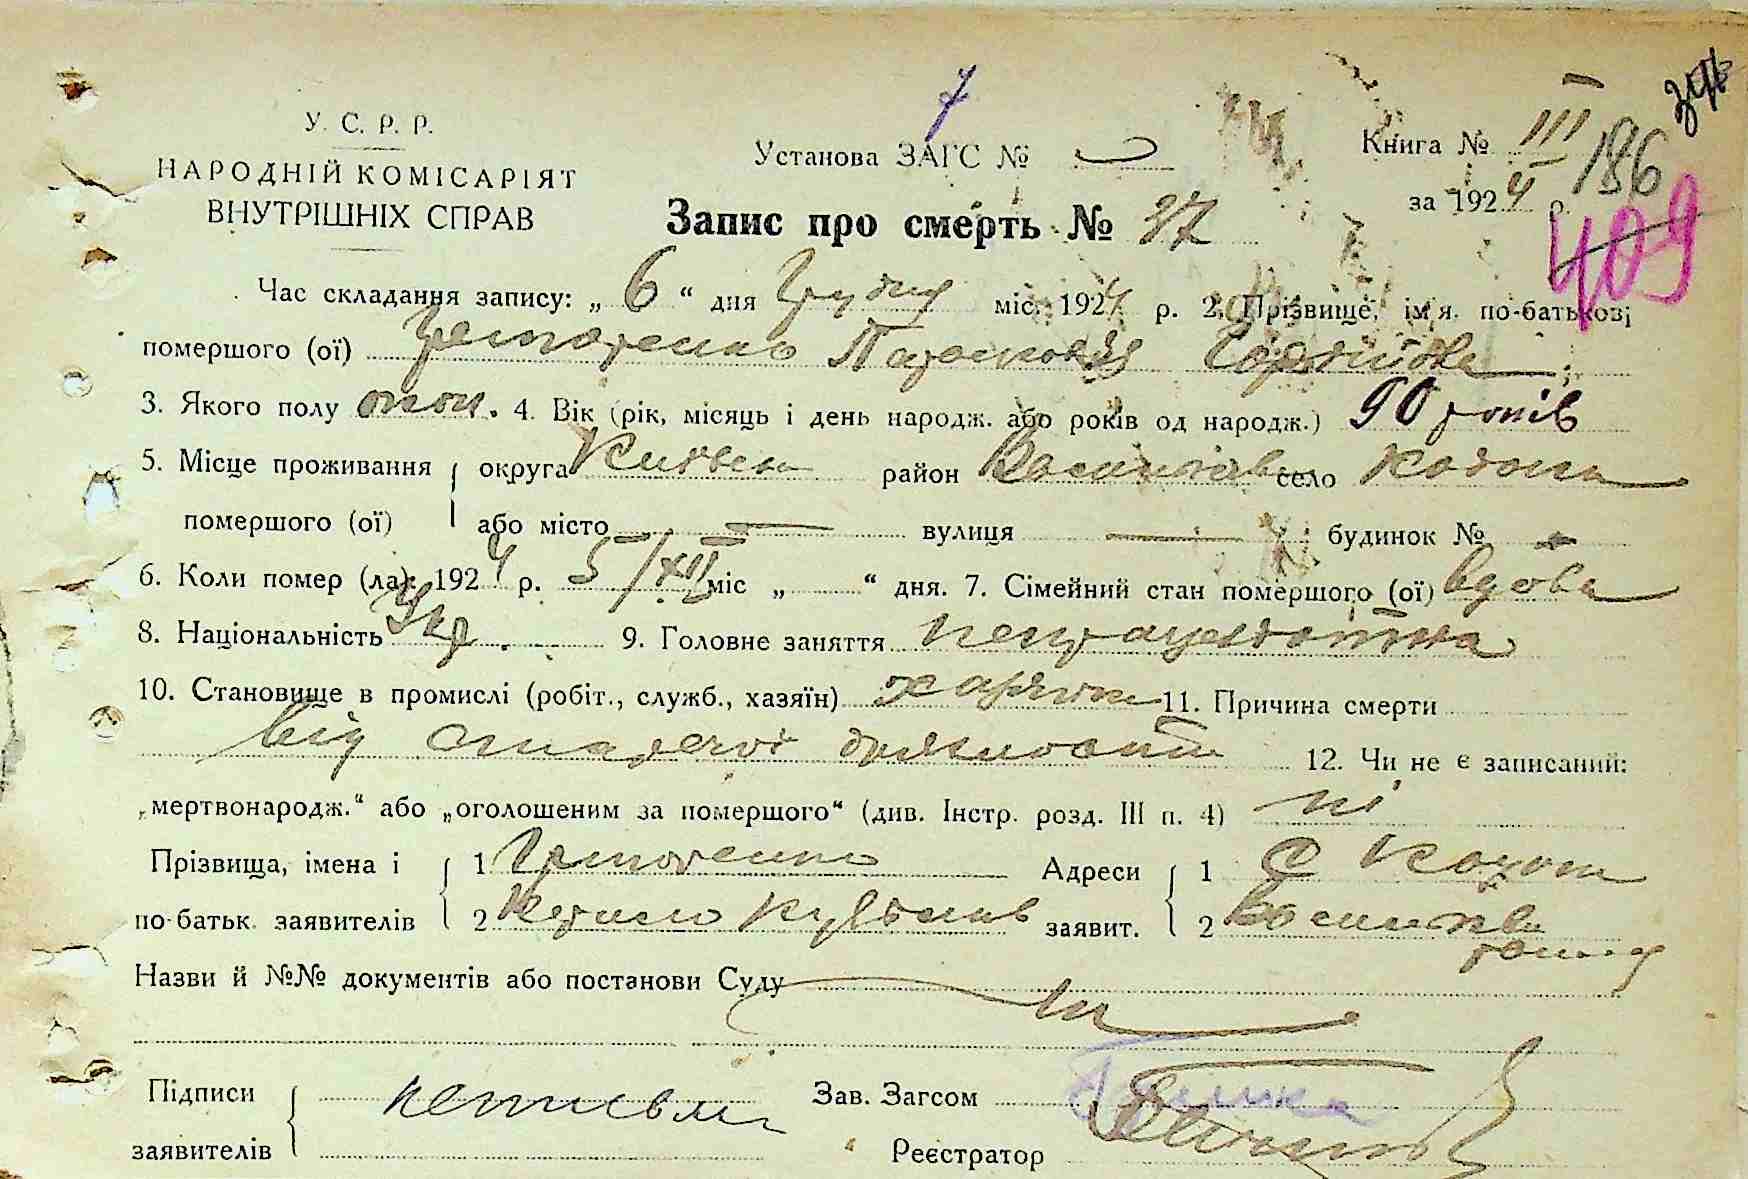 У. С. Р. Р.
НАРОДНІЙ КОМІСАРІЯТ
ВНУТРІШНІХ СПРАВ
Установа ЗАГС №
Книга № III
за 1924 р.
186
409
Запис про смерть № 37
Час складання запису: „ 6 “ дня Грудня міс. 1924 р. 2. Прізвище, ім'я. по-батькові
помершого (ої)
3. Якого полу жон. 4. Вік (рік, місяць і день народж. або років од народж.) 90 років
5. Місце проживання округа Київськ район Васильків село
помершого (ої) або місто — вулиця — будинок № —
6. Коли помер (ла): 1924 р. 5/XII міс „ “ дня. 7. Сімейний стан помершого (ої) вдова
8. Національність Укр. 9. Головне заняття непрацездатна
10. Становище в промислі (робіт., служб., хазяїн) 11. Причина смерти
від старечої дряхлости 12. Чи не є записаний:
„мертвонародж.“ або „оголошеним за помершого“ (див. Інстр. розд. III п. 4) ні
Прізвища, імена і 1 Адреси 1 с
по-батьк. заявителів 2 заявит. 2
Назви й №№ документів або постанови Суду
Підписи неписьм Зав. Загсом
заявителів Реєстратор